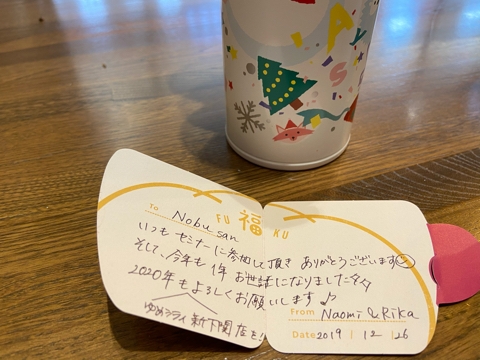 To Nobu san
FU 福 KU
いつもセミナーに参加して頂き ありがとうございます
そして、今年も1年 お世話になりました
2020年もよろしくお願いします♪
新下関店を!!
From Naomi & Rika
Date 2019 | 12 | 26